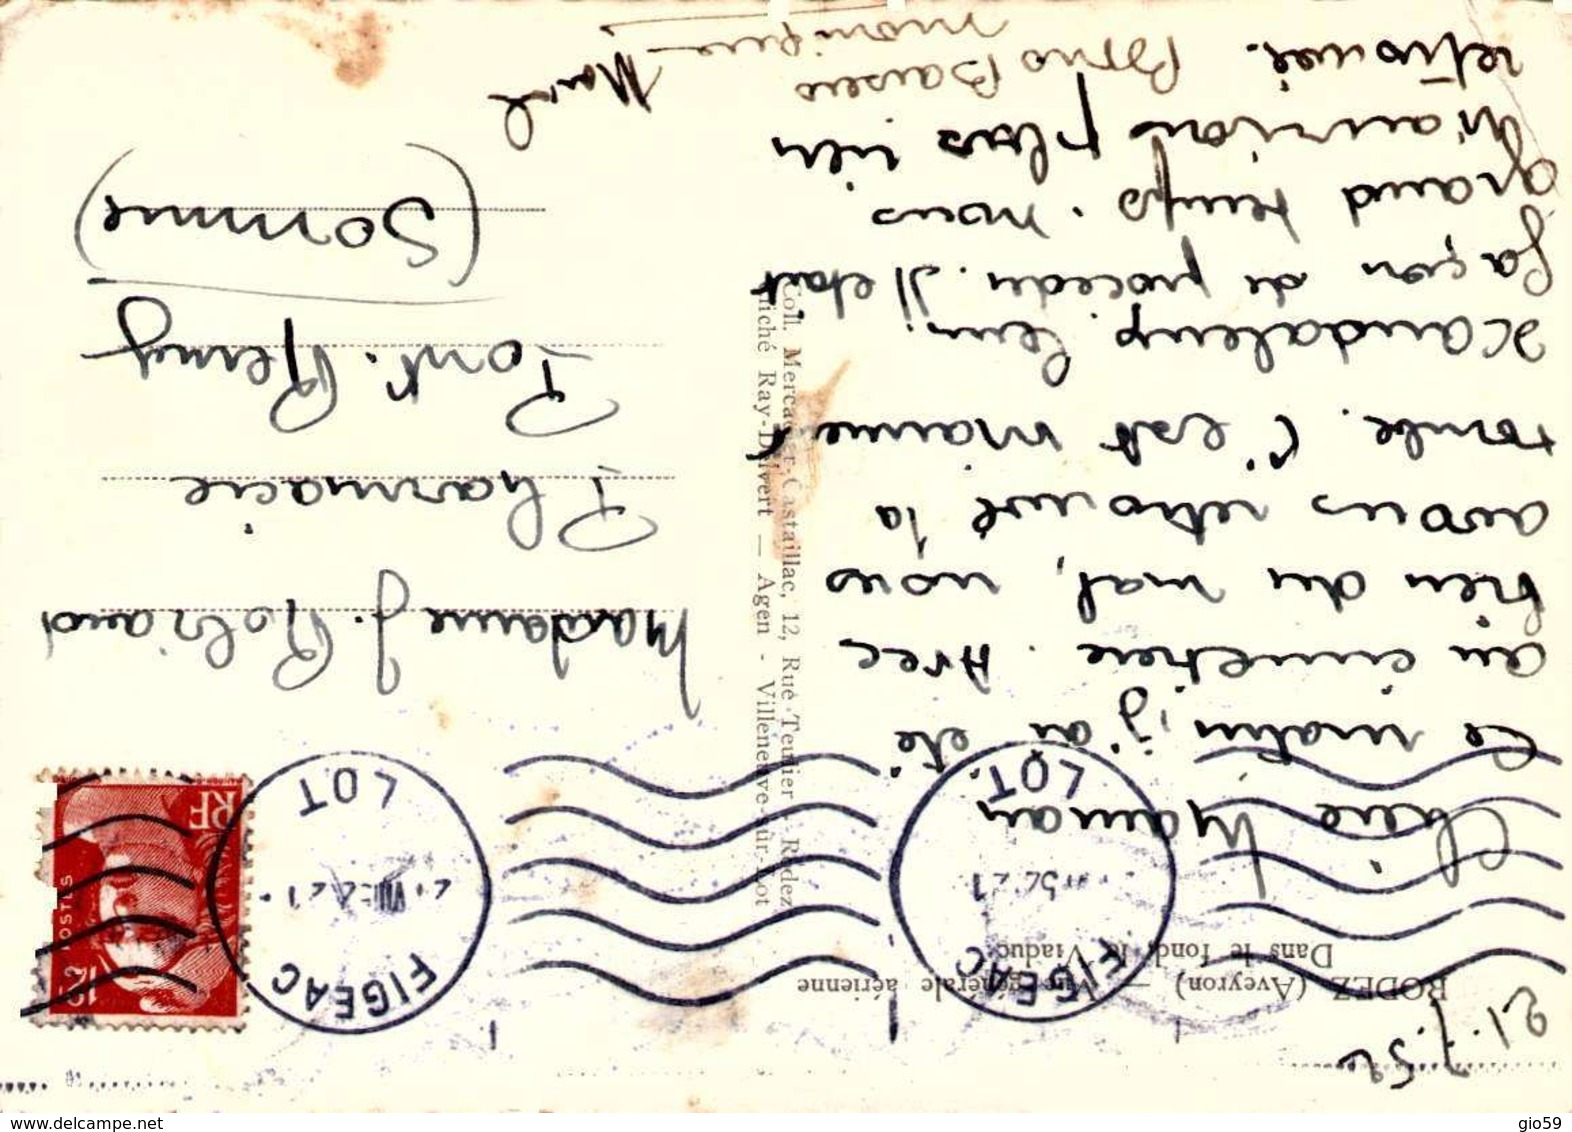 RODEZ (Aveyron) — Vue générale aérienne
Dans le fond, le Viaduc
21.7.52
Chère Maman
Ce matin, j'ai été
au cimetière. Avec
bien du mal, nous
avons retrouvé la
tombe. C'est vraiment
scandaleux, leur
façon de procéder. Il était
grand temps. nous
n'aurions plus rien
retrouvé. Bons Baisers
Monique
Coll. Mercadier-Castaillac, 12, Rue Teutier - Rodez
Cliché Ray-Delvert — Agen - Villeneuve-sur-Lot
FIGEAC
LOT
FIGEAC
LOT
RF
POSTES
12
Madame J. Robiaud
Pharmacie
Pont. Remy
(Somme)
www.delcampe.net
gio59